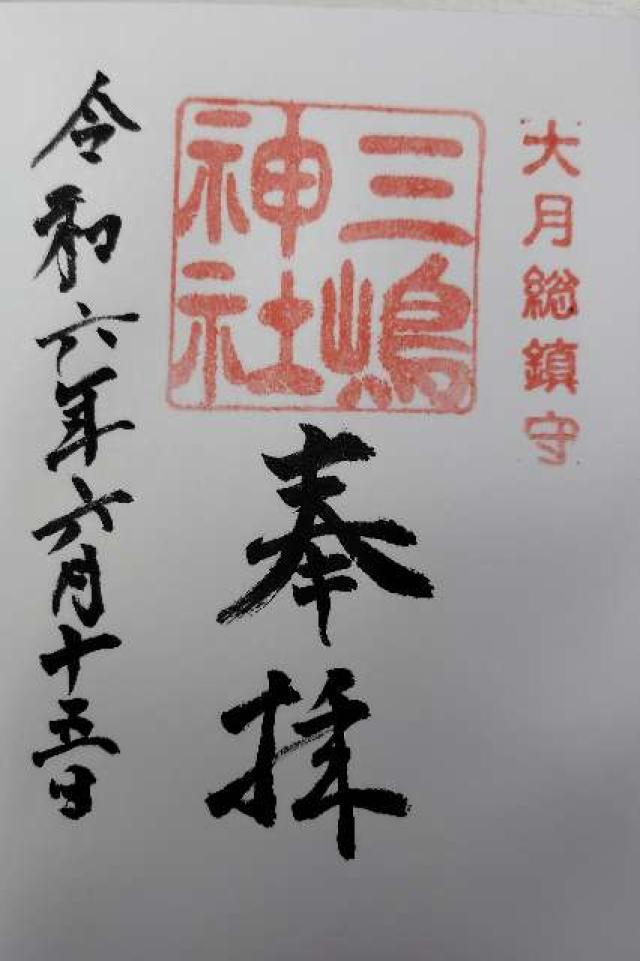 大月総鎮守
三嶋
神社
奉拝
令和六年六月十五日